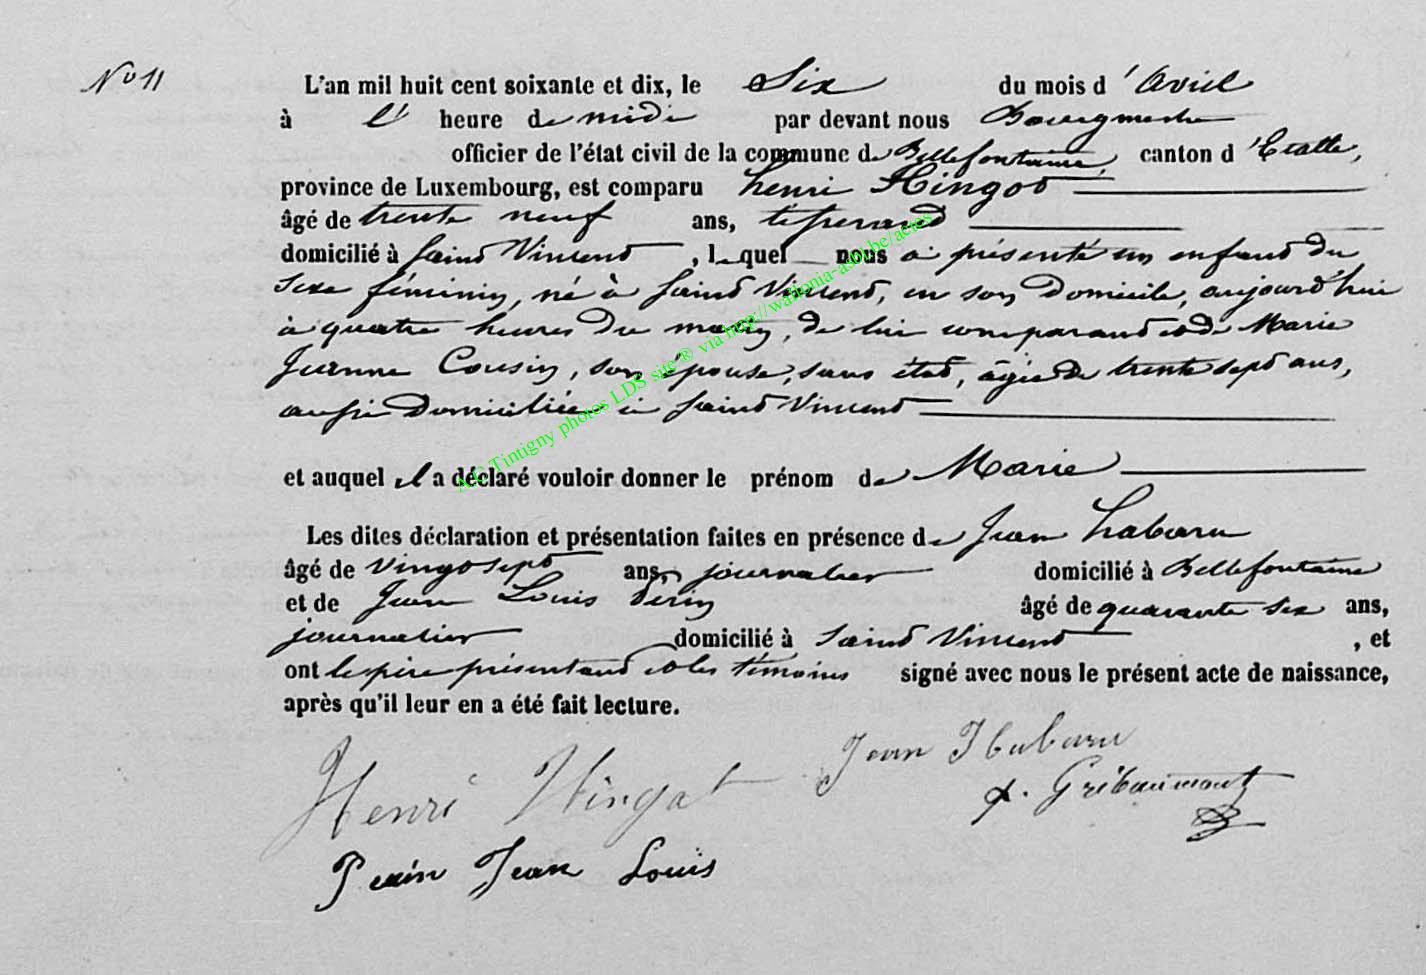 No 11
L'an mil huit cent soixante et dix, le Six du mois d'Avril
à l' heure de midi par devant nous Bourgmestre
officier de l'état civil de la commune de Bellefontaine, canton d'Etalle,
province de Luxembourg, est comparu henri Hingot
âgé de trente neuf ans, tisserand
domicilié à Saint Vincent, lequel nous a présenté un enfant du
sexe féminin, né à Saint Vincent, en son domicile, aujourd'hui
à quatre heures du matin, de lui comparant et de Marie
Jeanne Cousin, son épouse, sans état, âgée de trente sept ans,
aussi domiciliée à Saint Vincent
et auquel il a déclaré vouloir donner le prénom de Marie
Les dites déclaration et présentation faites en présence de Jean habaru
âgé de vingt sept ans, journalier domicilié à Bellefontaine
et de Jean Louis Périn âgé de quarante six ans,
journalier domicilié à Saint Vincent, et
ont le père présentant et les témoins signé avec nous le présent acte de naissance,
après qu'il leur en a été fait lecture.
Henri Hingot Jean Habaru
Gribaumont
Perin Jean Louis
A.C. Tintigny photos LDS site ® via http://wallonia-asbl.be/actes